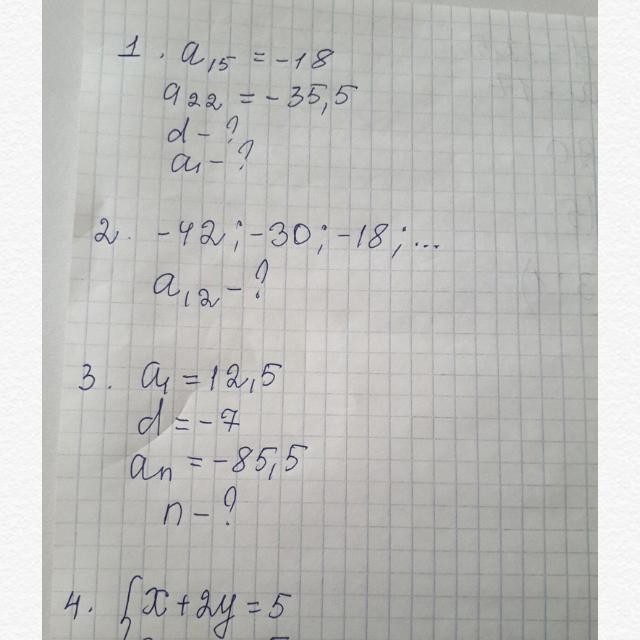 1. a₁₅ = -18
a₂₂ = -35,5
d - ?
a₁ - ?
2. -42; -30; -18; ...
a₁₂ - ?
3. a₁ = 12,5
d = -7
aₙ = -85,5
n - ?
4. { x + 2y = 5